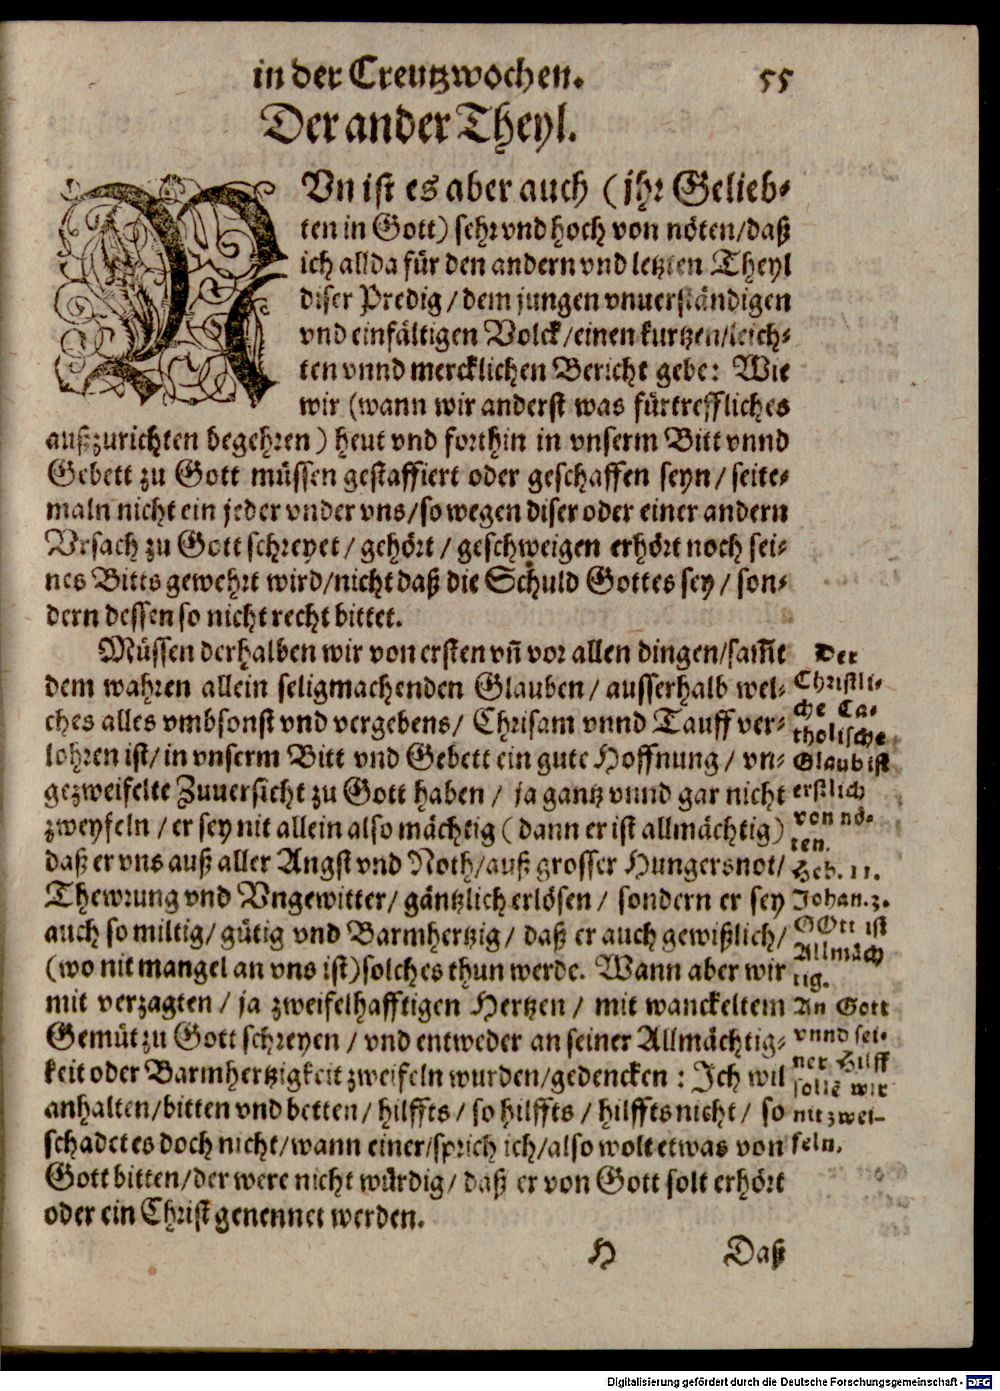 in der Creutzwochen. 55
Der ander Theyl.
NVn ist es aber auch (jhr Gelieb-
ten in Gott) sehr vnd hoch von nöten/daß
ich allda für den andern vnd letzten Theyl
diser Predig/dem jungen vnuerständigen
vnd einfältigen Volck/einen kurtzen/leich-
ten vnnd mercklichen Bericht gebe: Wie
wir (wann wir anderst was fürtreffliches
außzurichten begehren) heut vnd forthin in vnserm Bitt vnnd
Gebett zu Gott müssen gestaffiert oder geschaffen seyn/seite-
maln nicht ein jeder vnder vns/so wegen diser oder einer andern
Vrsach zu Gott schreyet/gehört/geschweigen erhört noch sei-
nes Bitts gewehrt wird/nicht daß die Schuld Gottes sey/son-
dern dessen so nicht recht bittet.
Müssen derhalben wir von ersten vñ vor allen dingen/sam̃t
dem wahren allein seligmachenden Glauben/ausserhalb wel-
ches alles vmbsonst vnd vergebens/Chrisam vnnd Tauff ver-
lohren ist/in vnserm Bitt vnd Gebett ein gute Hoffnung/vn-
gezweifelte Zuuersicht zu Gott haben/ja gantz vnnd gar nicht
zweyfeln/er sey nit allein also mächtig (dann er ist allmächtig)
daß er vns auß aller Angst vnd Noth/auß grosser Hungersnot/
Thewrung vnd Vngewitter/gäntzlich erlösen/sondern er sey
auch so miltig/gütig vnd Barmhertzig/daß er auch gewißlich/
(wo nit mangel an vns ist) solches thun werde. Wann aber wir
mit verzagten/ja zweifelhafftigen Hertzen/mit wanckeltem
Gemüt zu Gott schreyen/vnd entweder an seiner Allmächtig-
keit oder Barmhertzigkeit zweifeln wurden/gedencken: Ich wil
anhalten/bitten vnd betten/hilffts/so hilffts/hilffts nicht/so
schadet es doch nicht/wann einer/sprich ich/also wolt etwas von
Gott bitten/der were nicht würdig/daß er von Gott solt erhört
oder ein Christ genennet werden.
Der
Christli-
che Ca-
tholische
Glaub ist
erstlich
von nö-
ten.
Heb. 11.
Johan. 3.
GOtt ist
Allmäch
tig.
An Gott
vnnd sei-
ner Hilff
solle wir
nit zwei-
feln.
H Daß
Digitalisierung gefördert durch die Deutsche Forschungsgemeinschaft - DFG